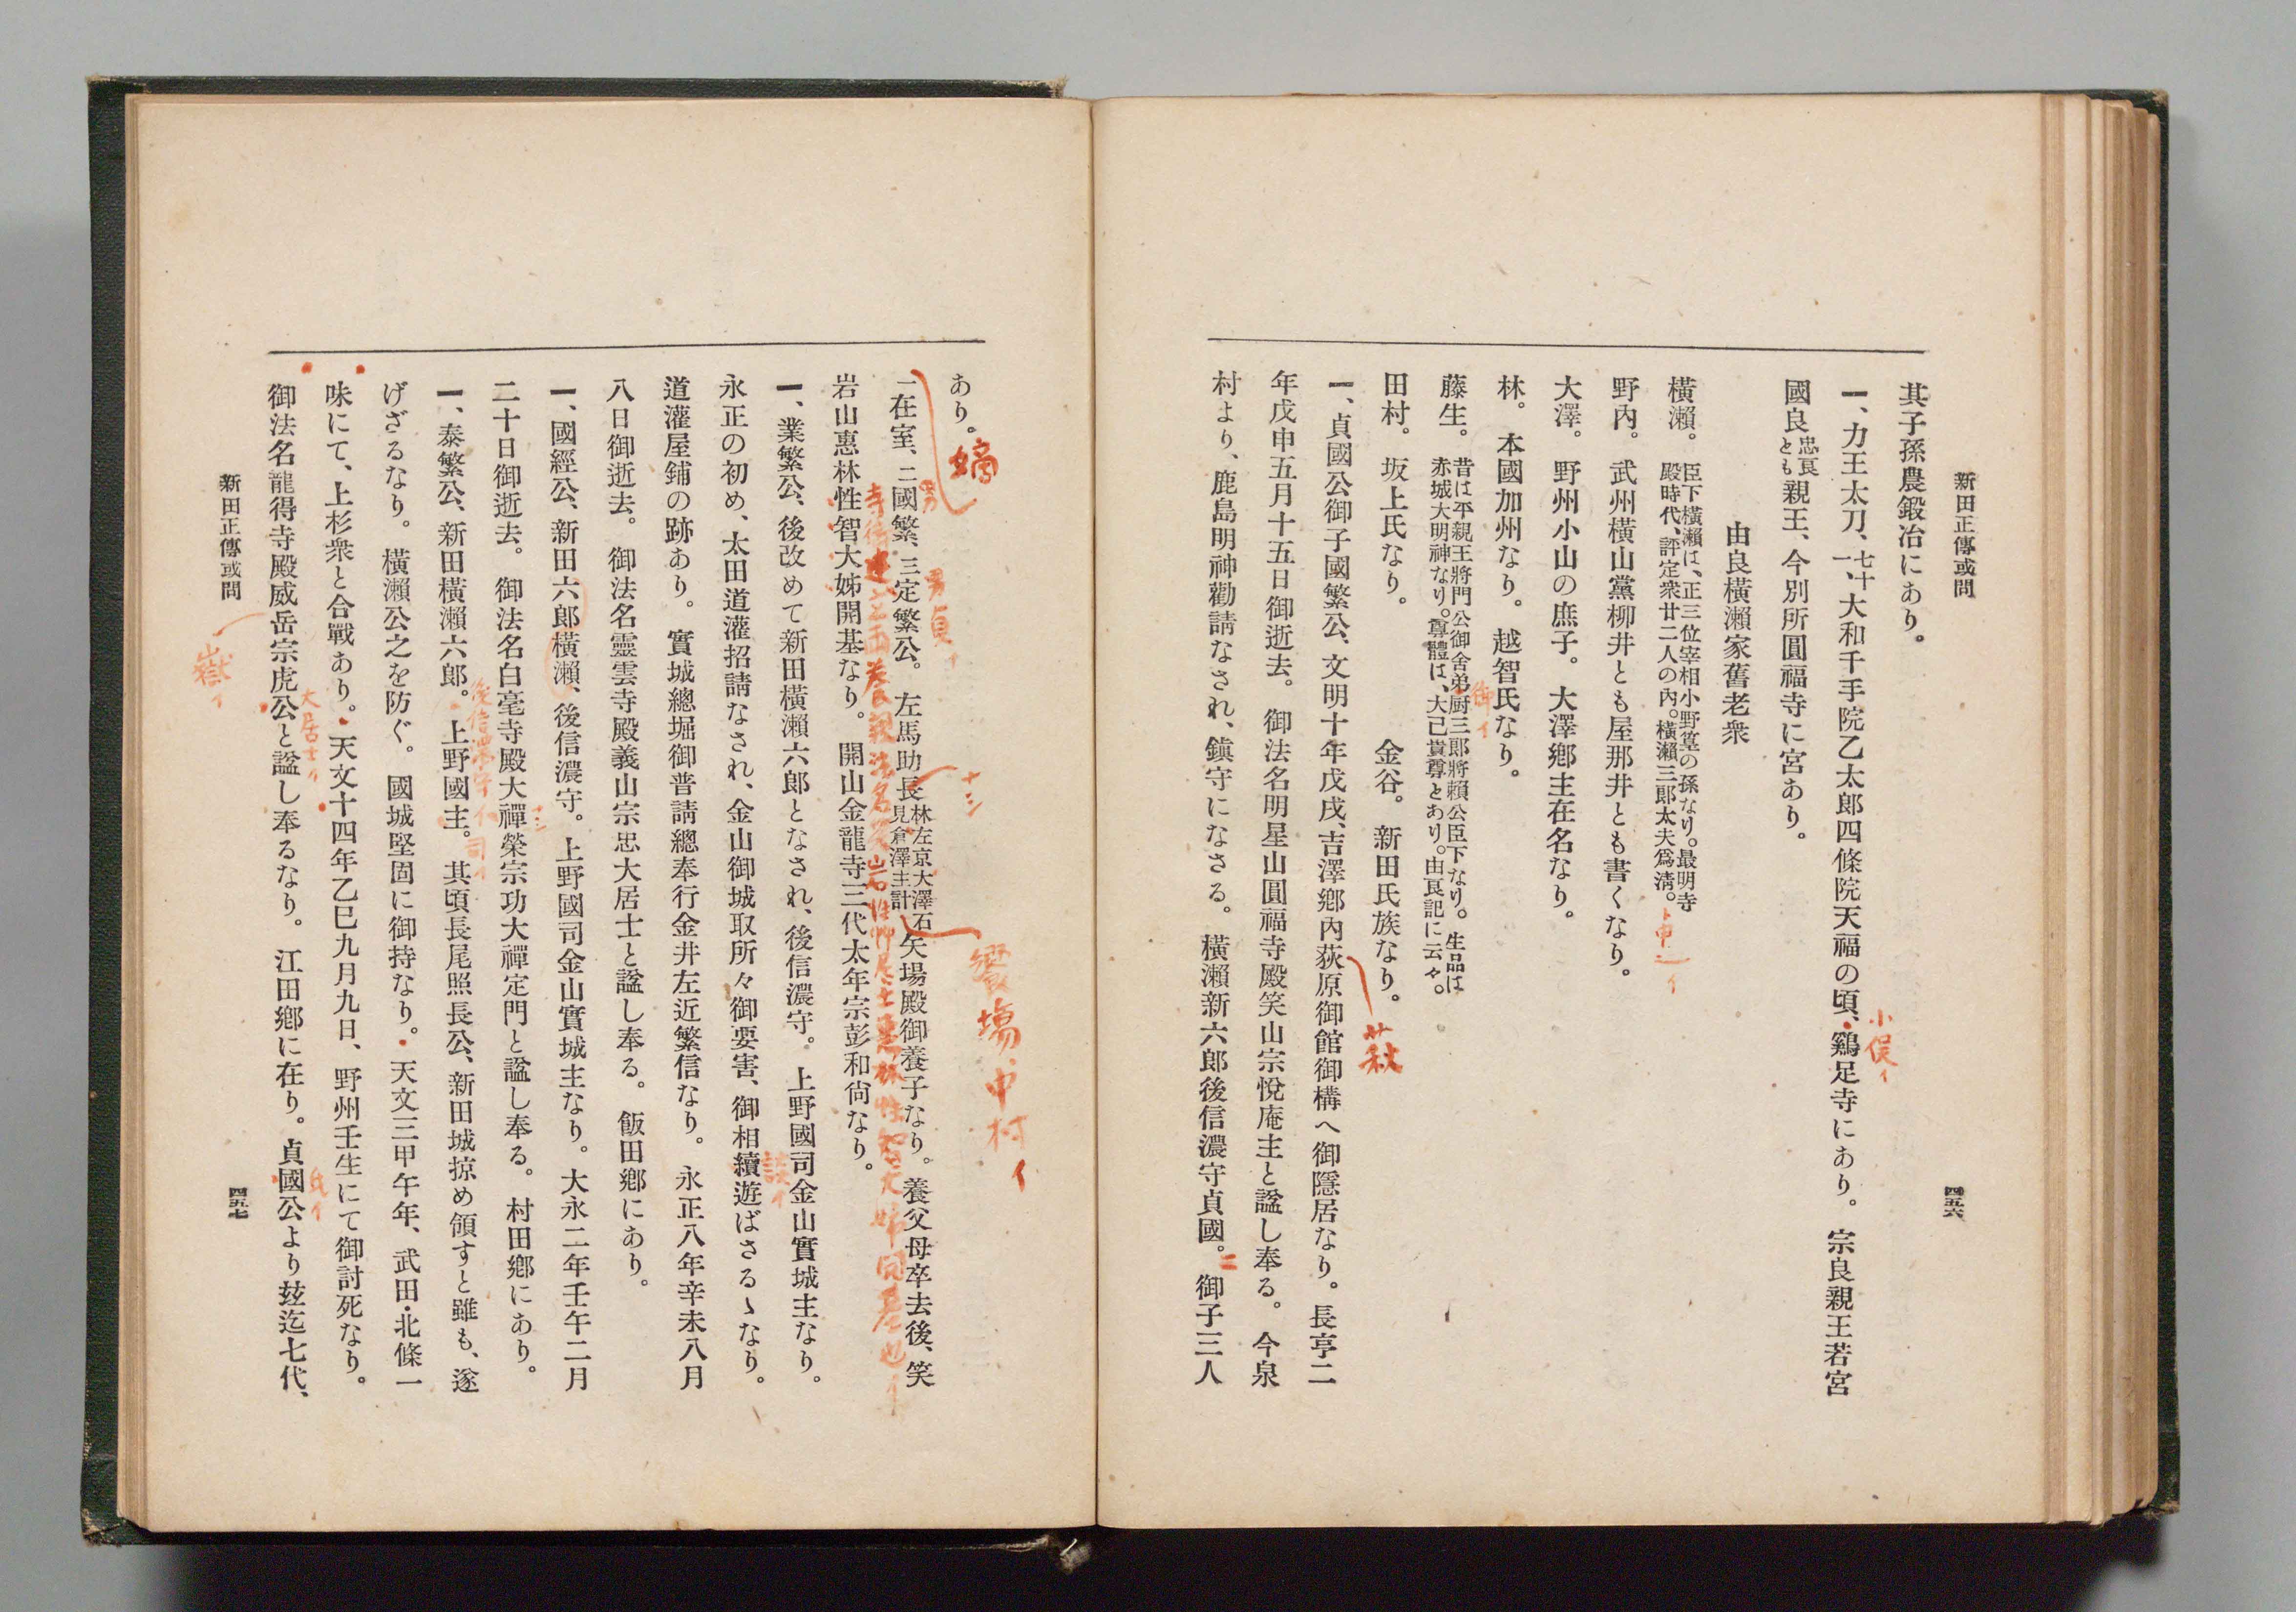 新田正傳或問
四五六
其子孫農鍛冶にあり。
一、力王太刀、七十一、大和千手院乙太郎四條院天福の頃、鷄足寺にあり。宗良親王若宮
小俣イ
國良忠良とも親王、今別所圓福寺に宮あり。
由良橫瀨家舊老衆
橫瀨。臣下橫瀨は、正三位宰相小野篁の孫なり。最明寺
殿時代、評定衆廿二人の內。橫瀨三郎太夫爲淸。
ト申ニイ
野內。武州橫山黨柳井とも屋那井とも書くなり。
大澤。野州小山の庶子。大澤鄉主在名なり。
林。本國加州なり。越智氏なり。
御イ
藤生。昔は平親王將門公御舍弟厨三郎將賴公臣下なり。生品は
赤城大明神なり。尊體は、大己貴尊とあり。由良記に云々。
田村。坂上氏なり。金谷。新田氏族なり。
一、貞國公御子國繁公、文明十年戊戌、吉澤鄉內荻原御館御構へ御隱居なり。長享二
萩
年戊申五月十五日御逝去。御法名明星山圓福寺殿笑山宗悅庵主と諡し奉る。今泉
村より、鹿島明神勸請なされ、鎭守になさる。橫瀨新六郎後信濃守貞國。御子三人
ニ
あり。
嫡
一在室、二國繁、三定繁公。左馬助長林左京大澤石見倉澤主計矢場殿御養子なり。養父母卒去後、笑
男
男貞イ
十ミ
饗塲、中村イ
岩山惠林性智大姊開基なり。開山金龍寺三代太年宗彭和尙なり。
一、業繁公、後改めて新田橫瀨六郎となされ、後信濃守。上野國司金山實城主なり。
永正の初め、太田道灌招請なされ、金山御城取所々御要害、御相續遊ばさるゝなり。
談イ
道灌屋鋪の跡あり。實城總堀御普請總奉行金井左近繁信なり。永正八年辛未八月
八日御逝去。御法名靈雲寺殿義山宗忠大居士と諡し奉る。飯田鄉にあり。
一、國經公、新田六郎橫瀨、後信濃守。上野國司金山實城主なり。大永二年壬午二月
二十日御逝去。御法名白毫寺殿大禪榮宗功大禪定門と諡し奉る。村田鄉にあり。
一、泰繁公、新田橫瀨六郎。上野國主。其頃長尾照長公、新田城掠め領すと雖も、遂
後信濃守イ
司イ
げざるなり。橫瀨公之を防ぐ。國城堅固に御持なり。天文三甲午年、武田・北條一
味にて、上杉衆と合戰あり。天文十四年乙巳九月九日、野州壬生にて御討死なり。
大居士イ
御法名龍得寺殿威岳宗虎公と諡し奉るなり。江田鄉に在り。貞國公より玆迄七代、
嶽イ
氏イ
新田正傳或問
四五七